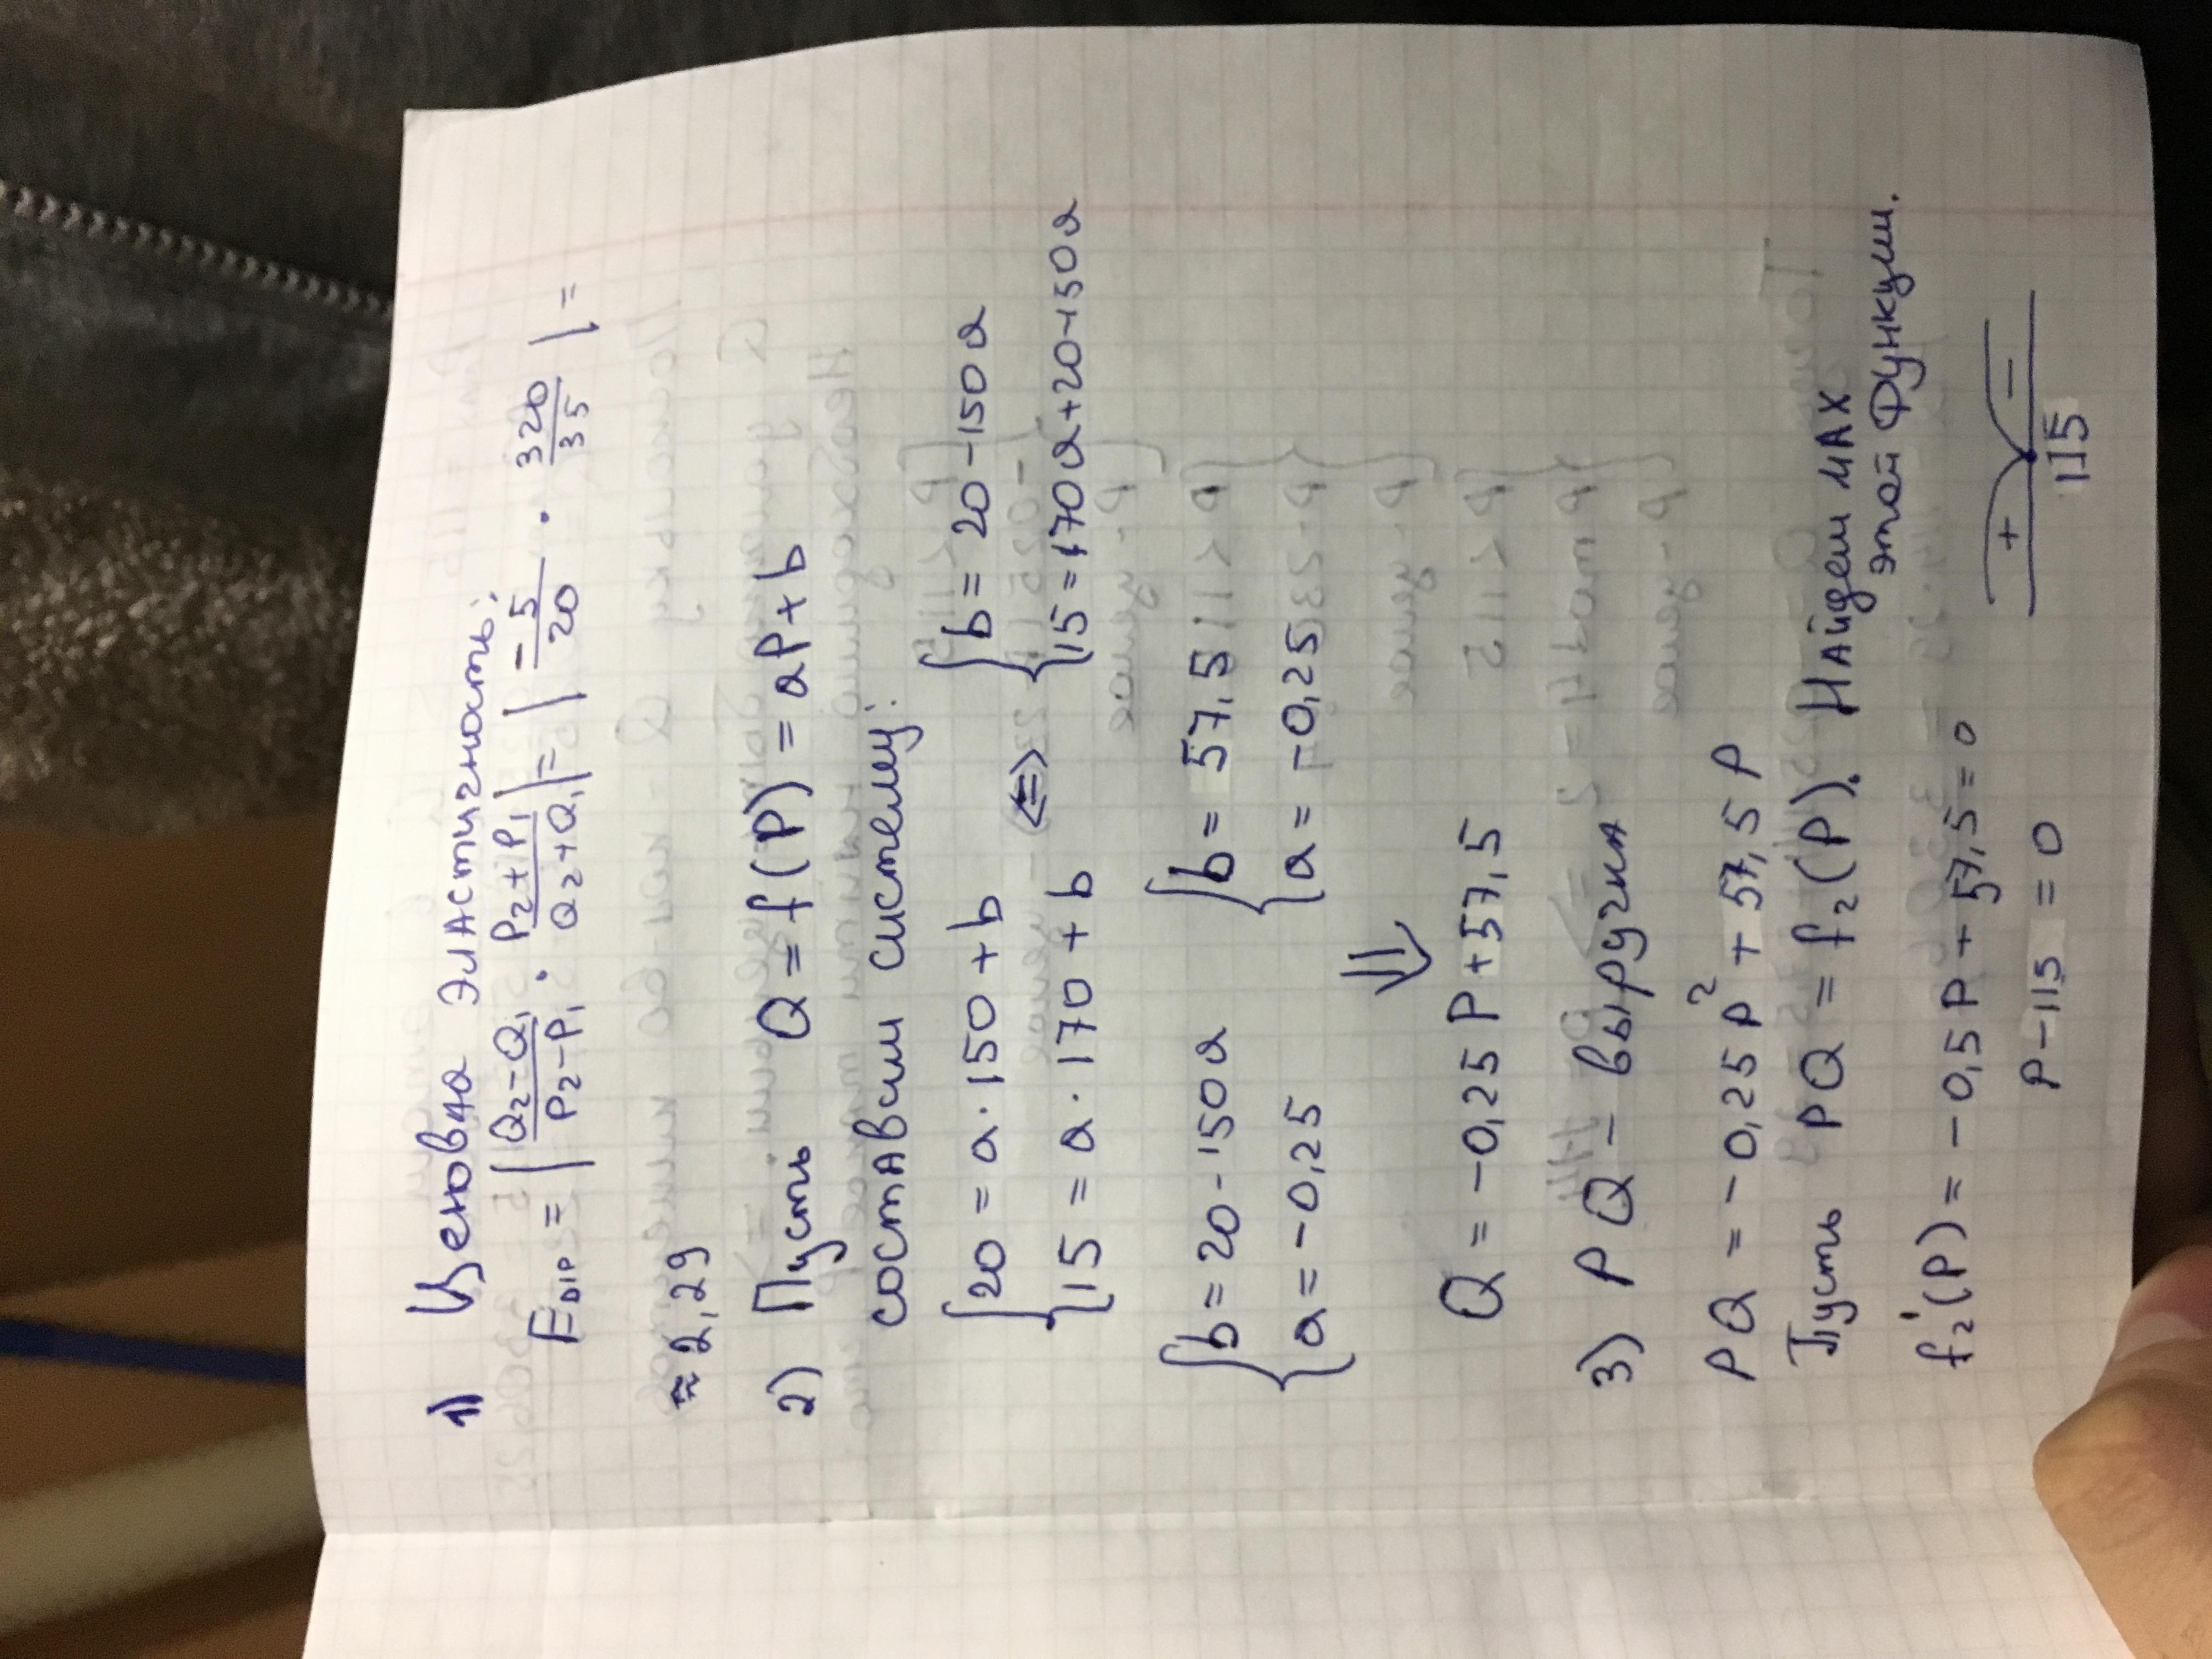 1) Ценовая эластичность:
E_D|P = | (Q₂-Q₁)/(P₂-P₁) · (P₂+P₁)/(Q₂+Q₁) | = | (-5)/20 · 320/35 | =
≈ 2,29
2) Пусть Q = f(P) = aP + b
составим систему:
{ 20 = a·150 + b
{ 15 = a·170 + b
<=>
{ b = 20 - 150a
{ 15 = 170a + 20 - 150a
{ b = 20 - 150a
{ a = -0,25
{ b = 57,5
{ a = -0,25
⇓
Q = -0,25P + 57,5
3) PQ - выручка
PQ = -0,25P² + 57,5P
Пусть PQ = f₂(P). Найдем MAX
этой функции.
f₂'(P) = -0,5P + 57,5 = 0
P - 115 = 0
+ -
115